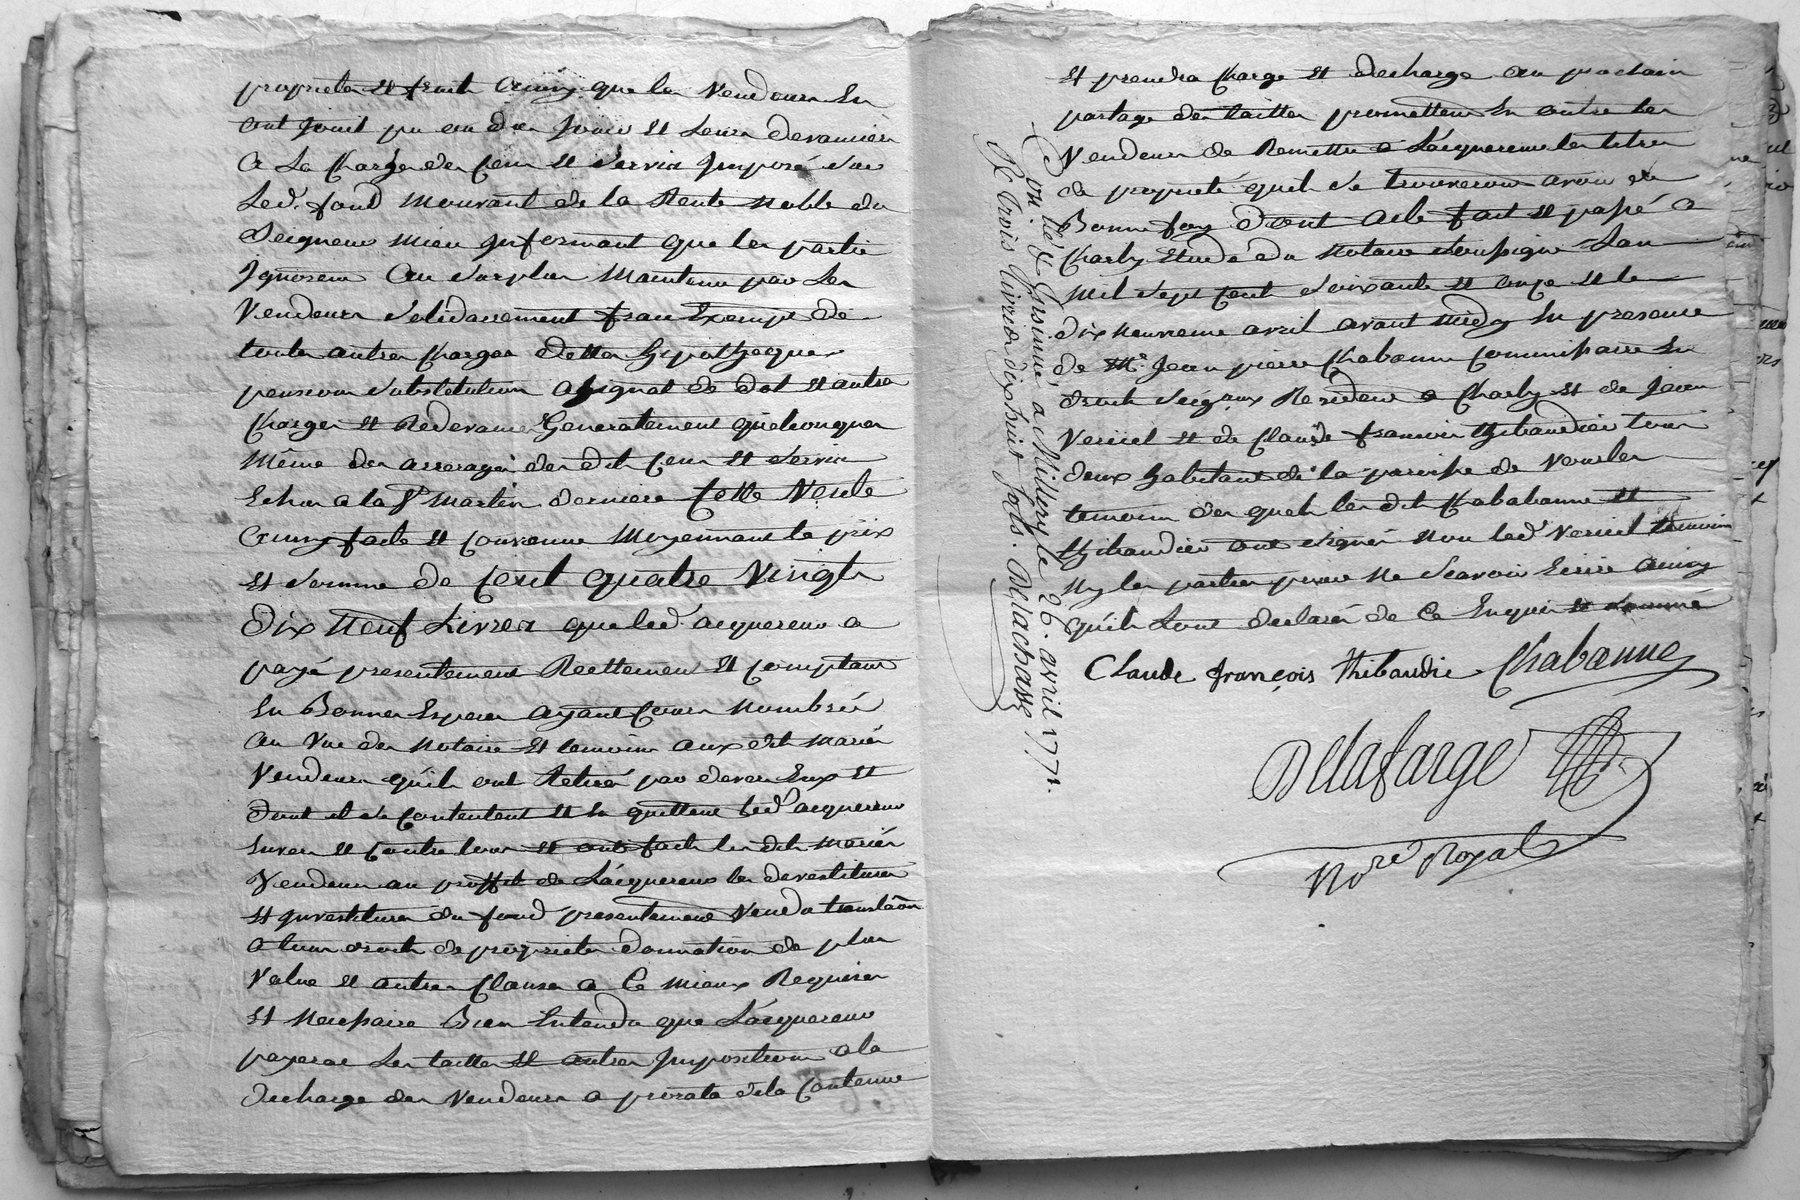 proprietes et fruit ainsy que les Vendeurs En
ont Jouit pu ou deu Jouir et Leurs devanciers
a La Charge des Cens et Servis Imposé sur
Led. fond mouvant de la Rente noble du
Seigneur mieu Informant que les partie
Ignorens au Surplus maintenu par Les
Vendeurs Solidairement franc Exempt de
toutes autres Charges dettes hipotheques
pension Substitution assignat de dot et autre
Charges et Redevances Generalement quelconques
même des arrerages des dits Cens et Servis
Echus a la St martin derniere Cette Vente
ainsy faite et Convenue moyennant le prix
et Somme de Cent quatre Vingts
Dix Neuf Livres que led. acquereur a
payé presentement Reellement et Comptant
En Bonnes Especes ayant Cours nombrée
au Vue du notaire et temoins aux dits mariés
Vendeurs qu'ils ont Retiré par devers Eux et
dont il se Contentent et en quittent led. acquereur
Envers et Contre tous et ont fait les dits mariés
Vendeurs au proffit de L'acquereur les devestitures
et investitures du fond presentement Vendu translaõn
a tous droits de proprietes donnation de plus
Value et autres Clauses a Ce mieux Requises
et Necessaire Bien Entendu que L'acquereur
payera Les tailles et autres Impositions a la
decharge des Vendeurs a prorata de la Contenue
et prendra Charge et decharge au prochain
partage des tailles promettens En outre les
Vendeurs de Remettre a L'acquereur les titres
de proprieté quil Se trouveront avoir de
Bonne foy dont acte fait et passé a
Charly Etude du Notaire Soussigné L'an
mil Sept Cent Soixante et onze et le
dix neuvieme avril avant midy En presence
de Mr. Jean pierre Chabanne Commissaire En
droits Seigaux Residens a Charly et de Jean
Verciel et de Claude francois thibaudier tous
deux habitans de la paroisse de Vourles
temoins des quels les dits Chababanne et
thibaudier ont signés non led. Verciel temoin
ny les parties pour ne Scavoir Ecrire ainsy
qu'ils L'ont declaré de Ce Enquis et Sommé
Claude françois Thibaudie Chabanne
Delafarge
Nore Royal
Con.lé & Insinué à Millery le 26. avril 1771.
Rt trois Livres dix huit sols. Delachasse